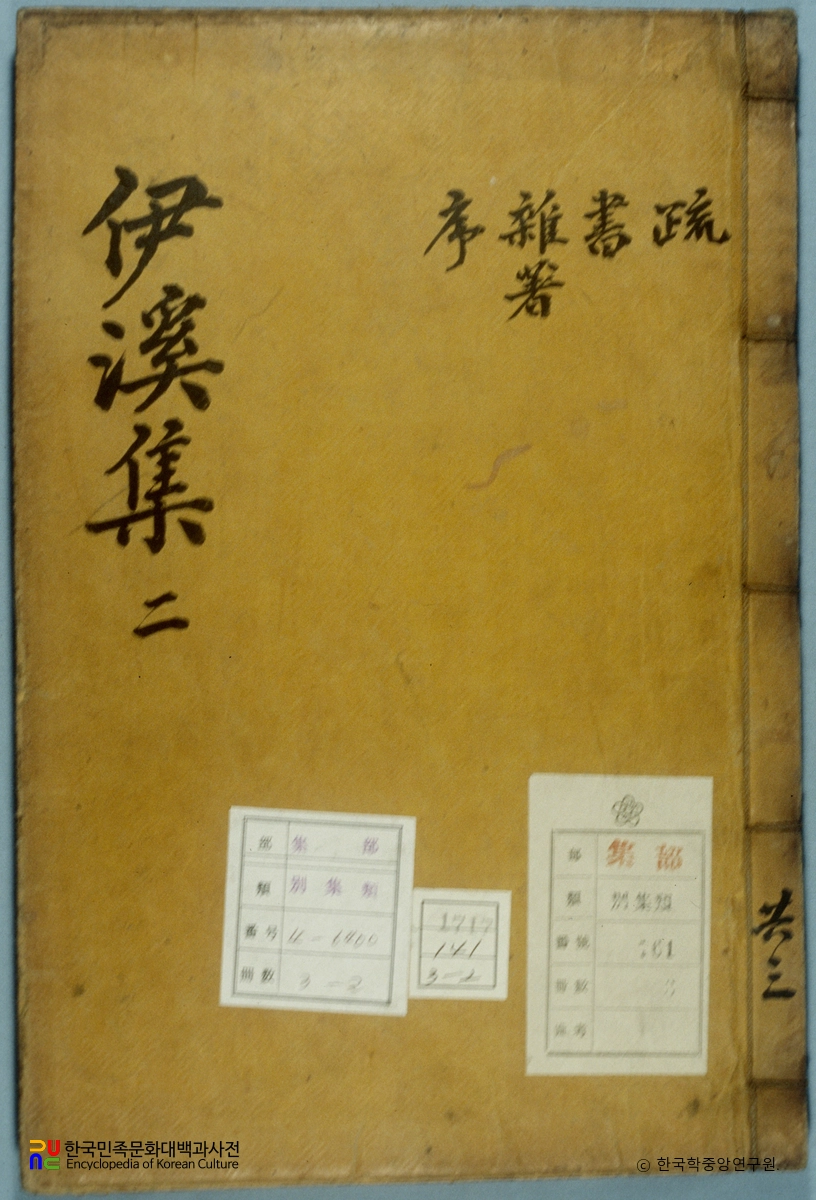 疏
書
雜著
序
伊溪集 二
共三
部 集 部
類 別集類
番号 K-6400
冊數 3-2
1717
141
3-2
部 集部
類 別集類
番號 361
冊數 3
한국민족문화대백과사전
Encyclopedia of Korean Culture
© 한국학중앙연구원.